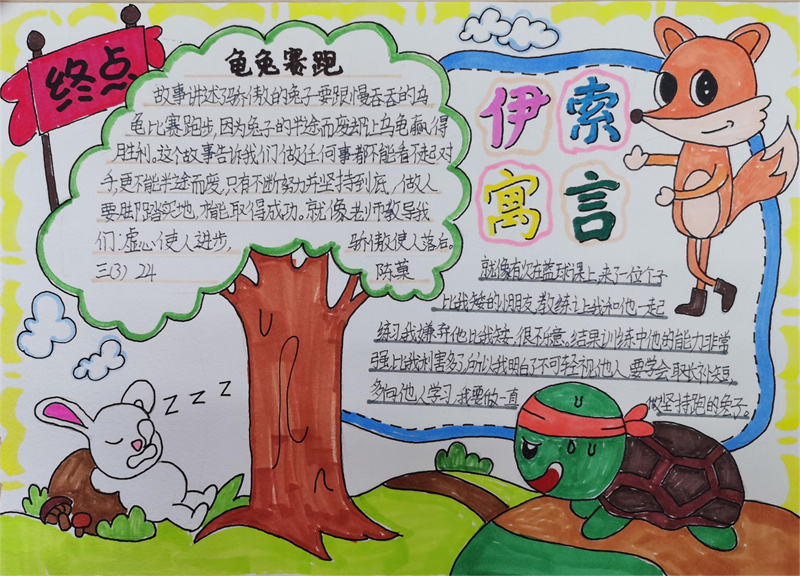 终点
龟兔赛跑
故事讲述了骄傲的兔子要跟慢吞吞的乌
龟比赛跑步,因为兔子的半途而废却让乌龟赢得
胜利。这个故事告诉我们做任何事都不能看不起对
手,更不能半途而废,只有不断努力并坚持到底,做人
要脚踏实地,才能取得成功。就像老师教导我
们:虚心使人进步, 骄傲使人落后。
三(3) 24 陈
伊索
寓言
就像有次在篮球课上,来了一位个子
比我矮的小朋友,教练让我和他一起
练习,我嫌弃他比我矮,很不乐意。结果训练中他的能力非常
强,比我利害多了,所以我明白了不可轻视他人,要学会取长补短,
多向他人学习,我要做一直 坚持跑的兔子。
ZZZ